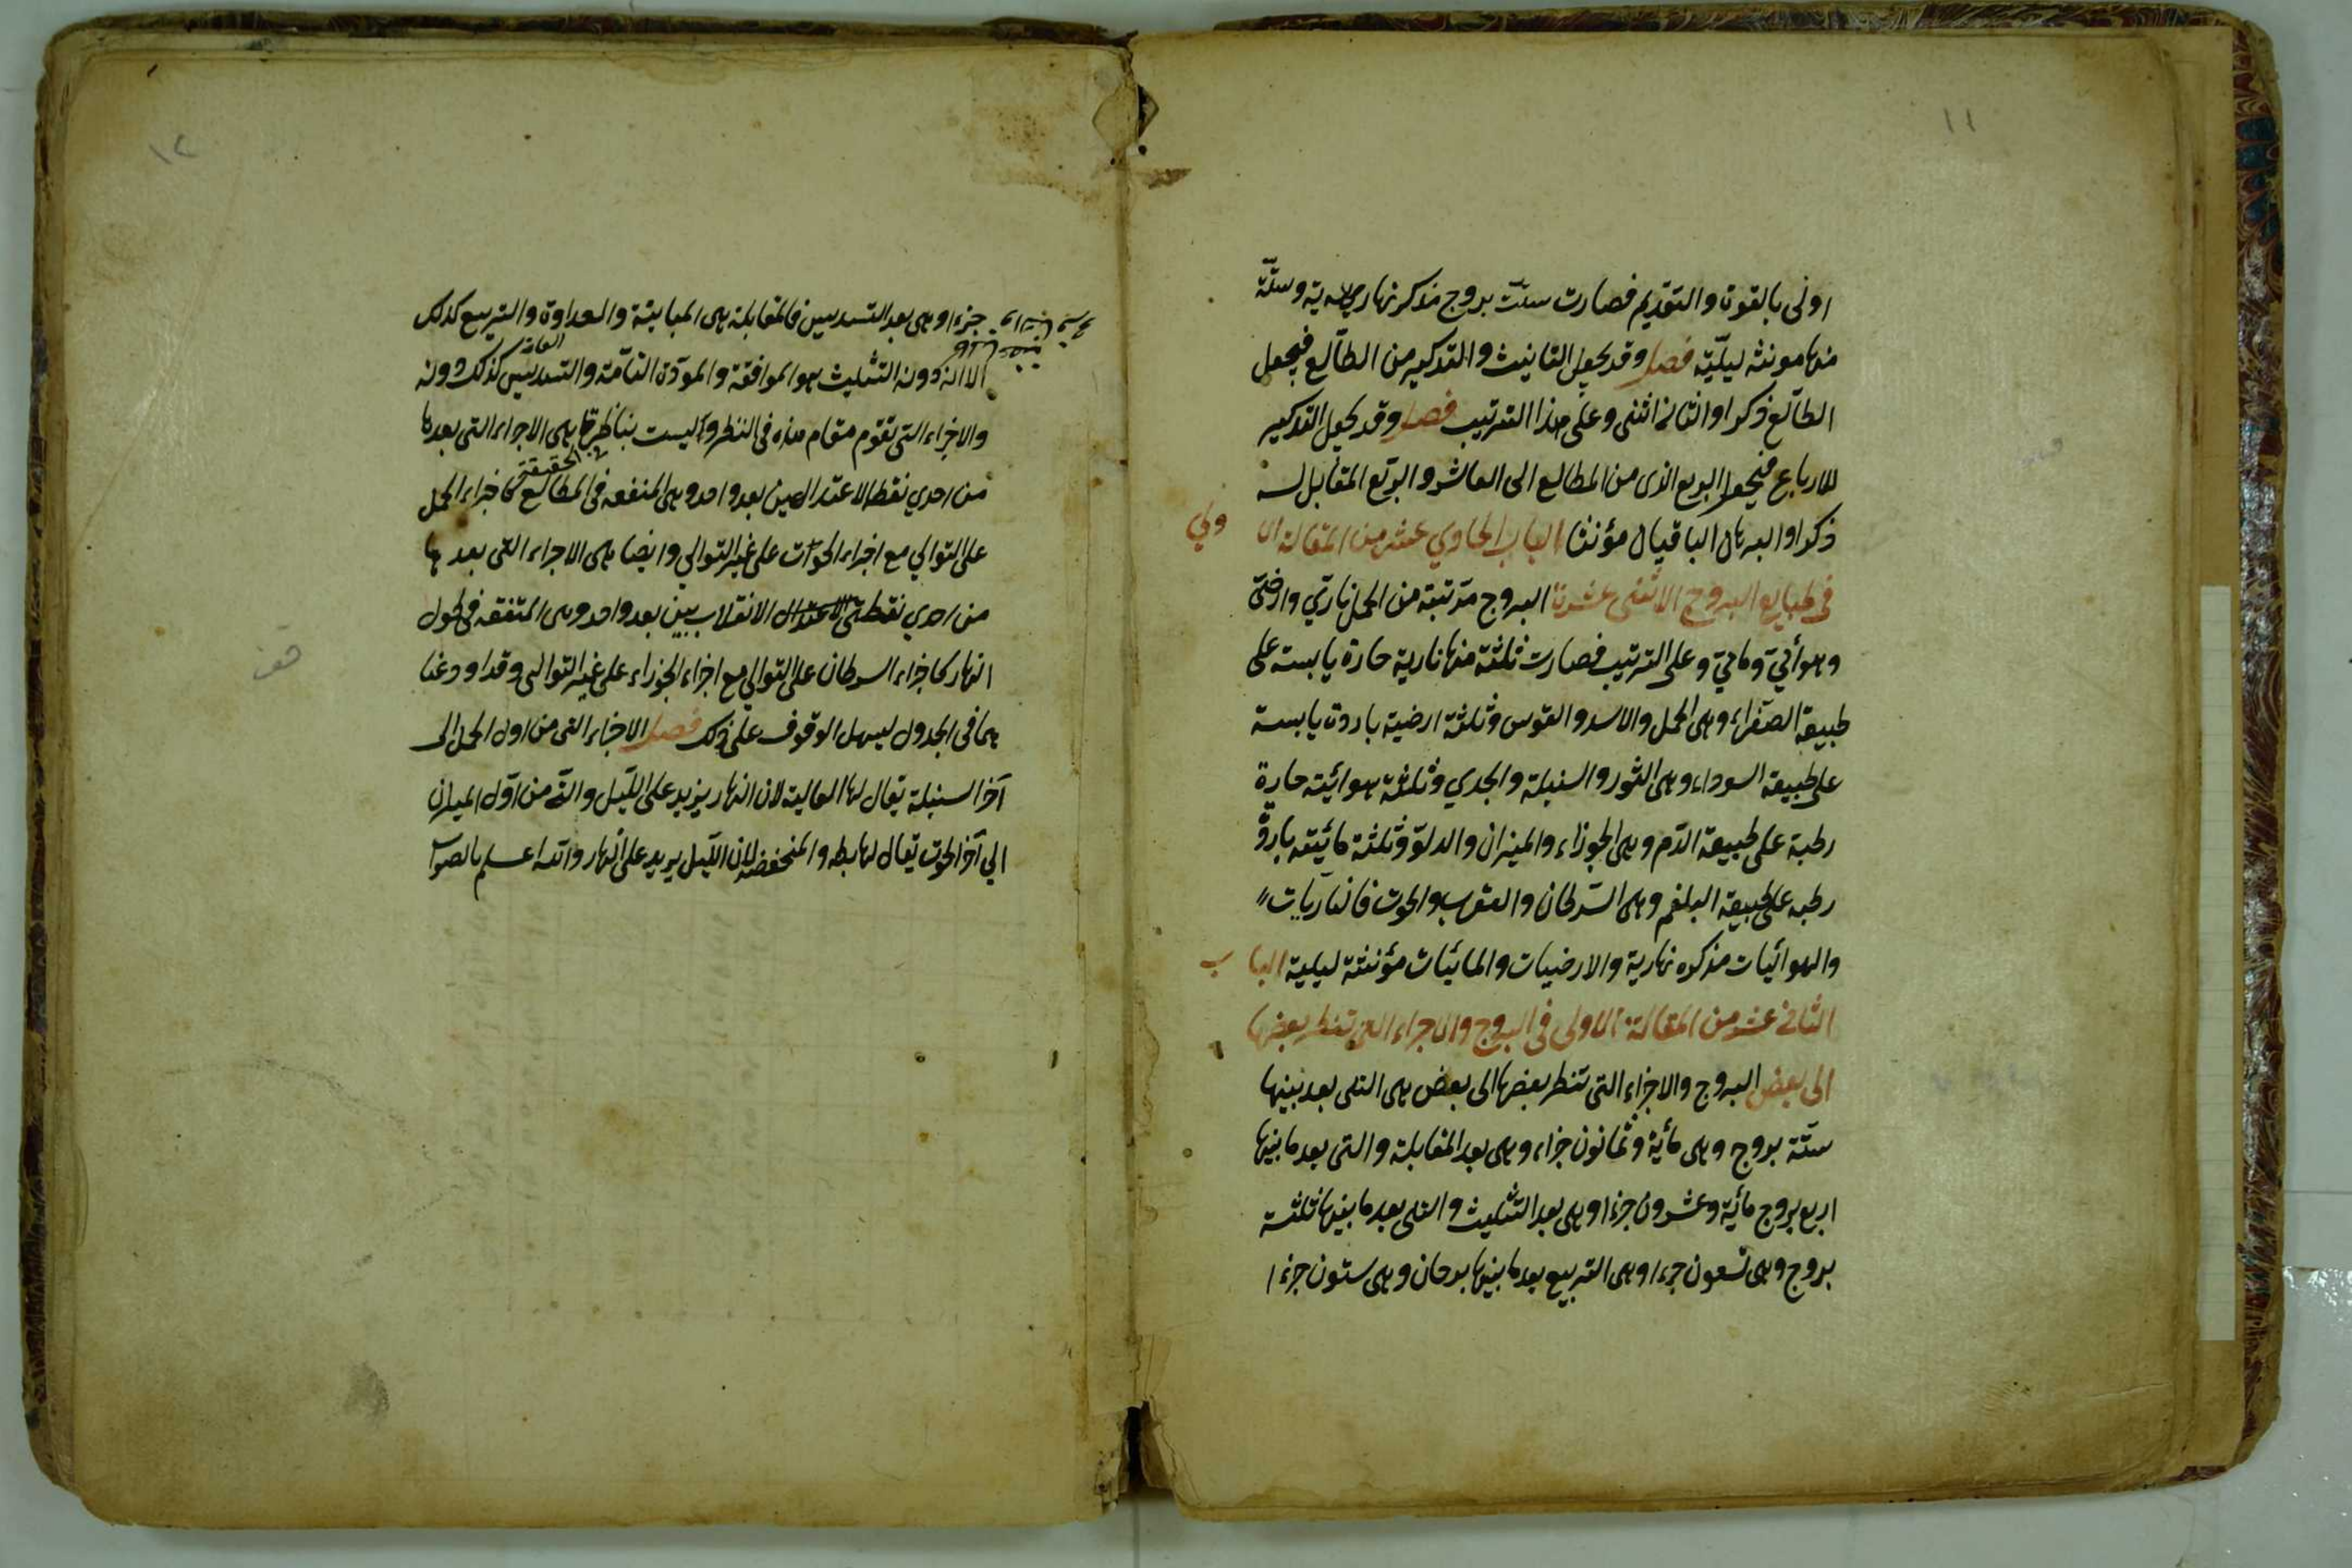 ١١
اولى بالقوة والتقديم فصارت ستّت بروج مذكر نهارية وستّة
منها مونثه ليليّة فصل وقد يجعل التانيث والتذكير من الطالع فيجعل
الطالع ذكرا والثانى انثى وعلى هذا الترتيب فصل وقد يجعل التذكير
للارباع فيجعل الربع الذى من المطالع الى العاشر والربع المقابل له
ذكرا والبرهان الباقيان مؤنثا الباب الحاوي عشر من المقالة الا ولي
فى طبايع البروج الاثنى عشرة البروج مرتبة من الحمل نارىّ وارضىّ
وهوائىّ ومائىّ وعلى الترتيب فصارت ثلثة منها نارية حارة يابسة على
طبيعة الصفراء وهى الحمل والاسد والقوس وثلثة ارضية باردة يابسة
على طبيعة السوداء وهى الثور والسنبلة والجدي وثلثة هوائيّة حارة
رطبة على طبيعة الدّم وهى الجوزاء والميزان والدلو وثلثة مائيّة باردة
رطبه على طبيعة البلغم وهى السّرطان والعقرب والحوت فالناريات
والهوائيات مذكره نهارية والارضيات والمائيات مؤنثة ليلية البا ب
الثانى عشر من المقالة الاولى فى البروج والاجراء التى تنظر بعضها
الى بعض البروج والاجزاء التى تنظر بعضها الى بعض هى التى بعد بينها
ستّة بروج وهى مأية وثمانون جزاء وهى بعد المقابلة والتى بعد ما بينها
اربع بروج مأية وعشرون جزءا وهى بعد التثليث والتى بعد ما بينها ثلثة
بروج وهى تسعون جزءا وهى التربيع بعد ما بينها برجان وهى ستون جزءا
١٢
جزءا وهى بعد التسديس فالمقابلة هى المباينة والعداوة والتربيع كذلك
الا انه دونه التثليث هو الموافقة والمودّة التآمّة والتسديس كذلك دونه
والاجزاء التى تقوم مقام هذه فى النظر وليست بناظرة هى الاجراء التى بعدها
من احدي نقطة الاعتدالين بعد واحد وهى المتفقه فى المطالع كاجزاء الحمل
الحقيقة
على التوالي مع اجزاء الحوت على غير التوالي وايضا هى الاجراء التى بعدها
من احدي نقطتى الاعتدال الانقلابيين بعد واحد وهى المتفقه فى طول
النهار كاجزاء السرطان على التوالي مع اجزاء الجوزاء على غير التوالى وقد اودعنا
هما فى الجدول ليسهل الوقوف على ذلك فصل الاجزاء التى من اول الحمل الى
آخر السنبلة يقال لها العالية لان النهار يزيد على اللّيل والتى من اوّل الميزان
الي آخر الحوت يقال لها هابطه والمنخفضه لان اللّيل يريد على النهار والله اعلم بالصواب